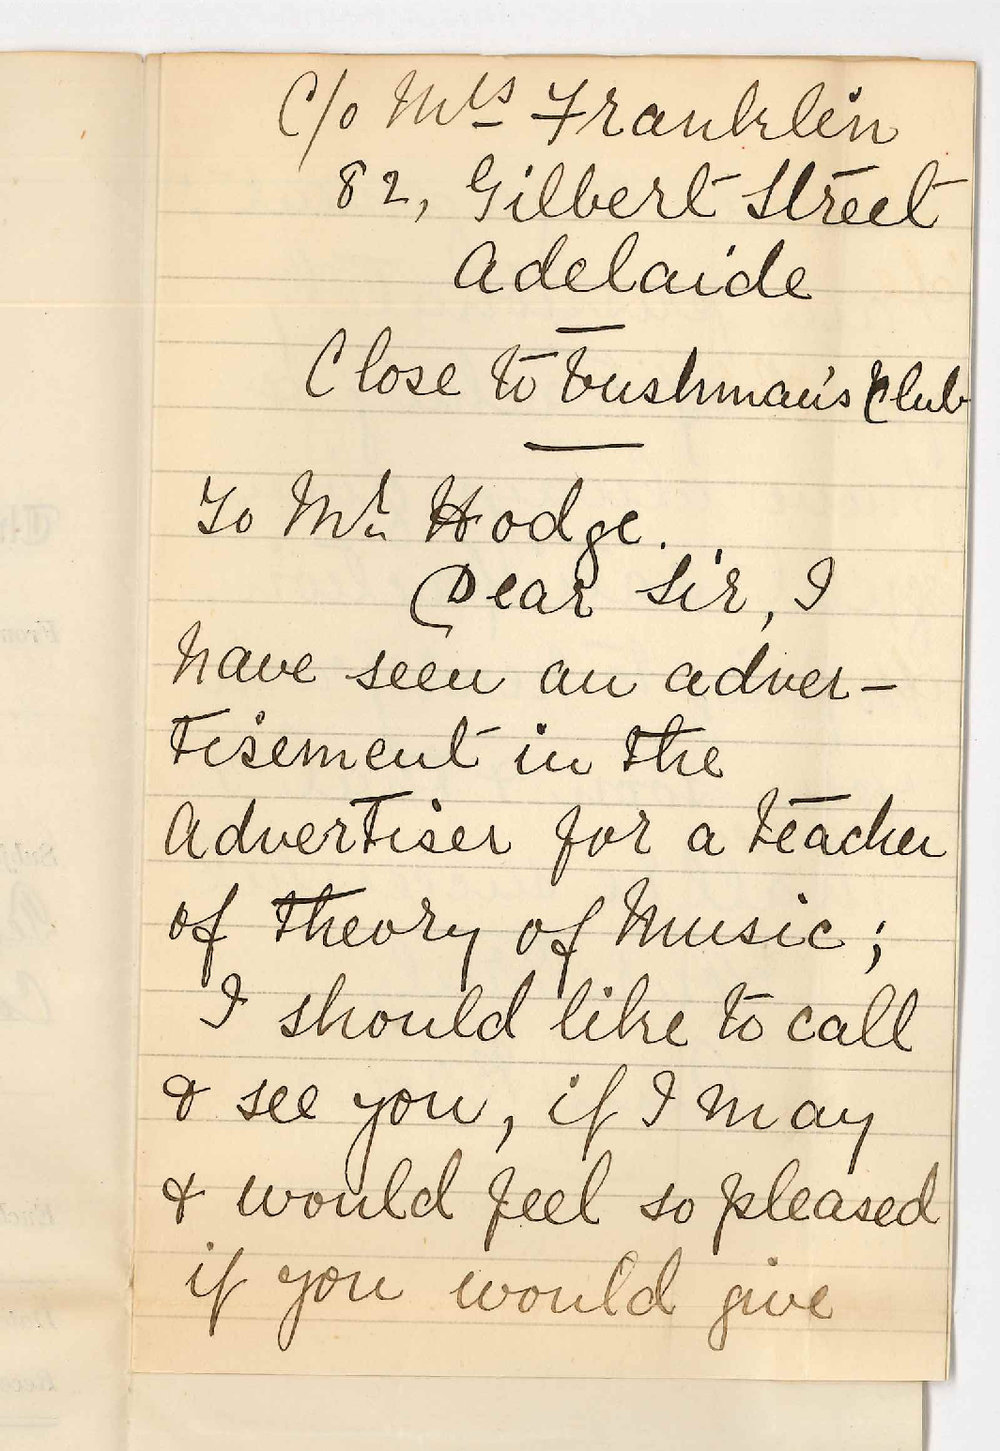 C/o Mrs Franklin
82, Gilbert Street
Adelaide
Close to bushman's Club
To Mr. Hodge.
Dear Sir, I
have seen an adver-
tisement in the
Advertiser for a teacher
of theory of Music;
I should like to call
& see you, if I may
& would feel so pleased
if you would give